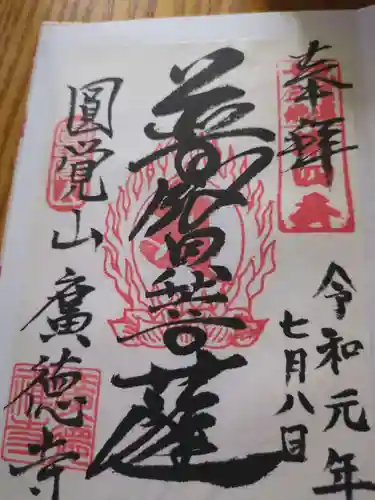 奉拝
令和元年
七月八日
普賢菩薩
圓覚山
廣徳寺